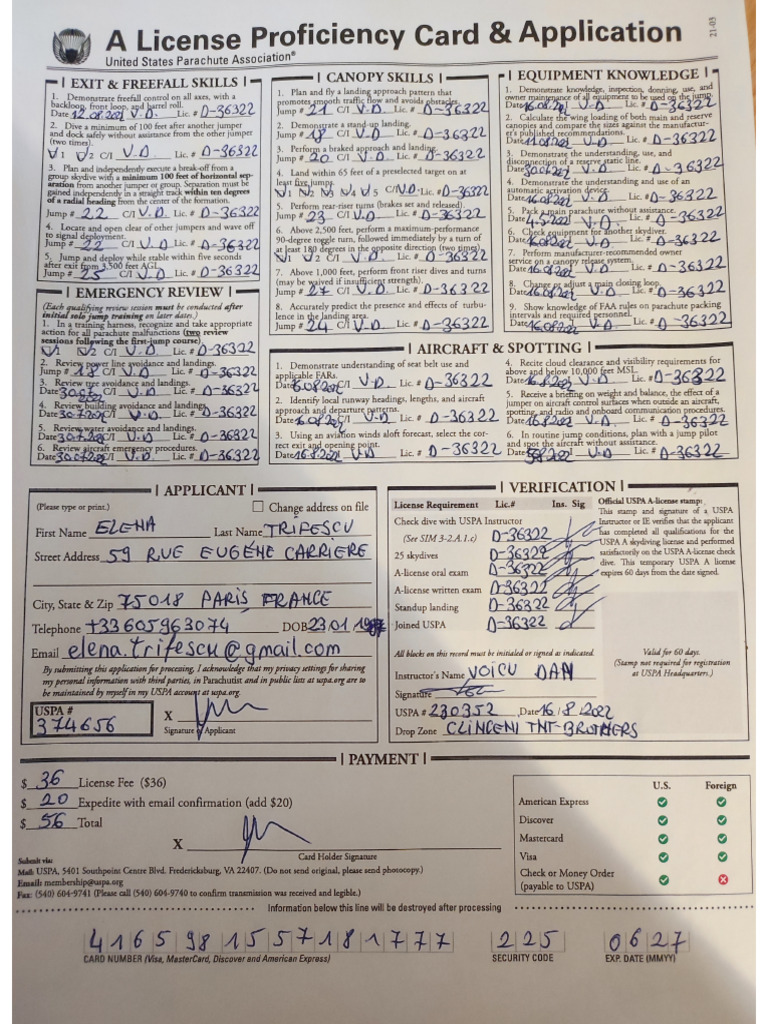 21-03
A License Proficiency Card & Application
United States Parachute Association®
EXIT & FREEFALL SKILLS
1. Demonstrate freefall control on all axes, with a
backloop, front loop, and barrel roll.
Date 12.08.2021 V.D. Lic. # D-36322
2. Dive a minimum of 100 feet after another jumper
and dock safely without assistance from the other jumper
(two times).
√1 √2 C/I V.D Lic. # D-36322
3. Plan and independently execute a break-off from a
group skydive with a minimum 100 feet of horizontal sep-
aration from another jumper or group. Separation must be
gained independently in a straight track within ten degrees
of a radial heading from the center of the formation.
Jump # 22 C/I V.D Lic. # D-36322
4. Locate and open clear of other jumpers and wave off
to signal deployment.
Jump # 22 C/I V.D Lic. # D-36322
5. Jump and deploy while stable within five seconds
after exit from 3,500 feet AGL.
Jump # 25 C/I V.D Lic. # D-36322
EMERGENCY REVIEW
(Each qualifying review session must be conducted after
initial solo jump training on later dates.)
1. In a training harness, recognize and take appropriate
action for all parachute malfunctions (two review
sessions following the first-jump course).
√1 √2 C/I V.D Lic. # D-36322
2. Review power line avoidance and landings.
Jump # 18 C/I V.D Lic. # D-36322
3. Review tree avoidance and landings.
C/I V.D Lic. # D-36322
4. Review building avoidance and landings.
C/I V.D Lic. # D-36322
5. Review water avoidance and landings.
C/I V.D Lic. # D-36322
6. Review aircraft emergency procedures.
C/I V.D. Lic. # D-36322
CANOPY SKILLS
1. Plan and fly a landing approach pattern that
promotes smooth traffic flow and avoids obstacles.
Jump # 21 C/I V.D Lic. # D-36322
2. Demonstrate a stand-up landing.
Jump # 18 C/I V.D Lic. # D-36322
3. Perform a braked approach and landing.
Jump # 20 C/I V.D Lic. # D-36322
4. Land within 65 feet of a preselected target on at
least five jumps.
√1 √2 √3 √4 √5 C/I V.D Lic. # D-36322
5. Perform rear-riser turns (brakes set and released).
Jump # 23 C/I V.D Lic. # D-36322
6. Above 2,500 feet, perform a maximum-performance
90-degree toggle turn, followed immediately by a turn of
at least 180 degrees in the opposite direction (two times)
√1 √2 C/I V.D Lic. # D-36322
7. Above 1,000 feet, perform front riser dives and turns
(may be waived if insufficient strength).
Jump # 27 C/I V.D Lic. # D-36322
8. Accurately predict the presence and effects of turbu-
lence in the landing area.
Jump # 24 C/I V.D Lic. # D-36322
EQUIPMENT KNOWLEDGE
1. Demonstrate knowledge, inspection, donning, use, and
owner maintenance of all equipment to be used on the jump.
V.D Lic. # D-36322
2. Calculate the wing loading of both main and reserve
canopies and compare the sizes against the manufactur-
er's published recommendations.
V.D Lic. # D-36322
3. Demonstrate the understanding, use, and
disconnection of a reserve static line.
V.D Lic. # D-36322
4. Demonstrate the understanding and use of an
automatic activation device.
V.D Lic. # D-36322
5. Pack a main parachute without assistance.
V.D Lic. # D-36322
6. Check equipment for another skydiver.
V.D Lic. # D-36322
7. Perform manufacturer-recommended owner
service on a canopy release system.
V.D Lic. # D-36322
8. Change or adjust a main closing loop.
V.D Lic. # D-36322
9. Show knowledge of FAA rules on parachute packing
intervals and required personnel.
V.D Lic. # D-36322
AIRCRAFT & SPOTTING
1. Demonstrate understanding of seat belt use and
applicable FARs.
C/I V.D Lic. # D-36322
2. Identify local runway headings, lengths, and aircraft
approach and departure patterns.
C/I V.D Lic. # D-36322
3. Using an aviation winds aloft forecast, select the cor-
rect exit and opening point.
C/I V.D Lic. # D-36322
4. Recite cloud clearance and visibility requirements for
above and below 10,000 feet MSL.
V.D Lic. # D-36322
5. Receive a briefing on weight and balance, the effect of a
jumper on aircraft control surfaces when outside an aircraft,
spotting, and radio and onboard communication procedures.
V.D Lic. # D-36322
6. In routine jump conditions, plan with a jump pilot
and spot the aircraft without assistance.
V.D Lic. # D-36322
APPLICANT
(Please type or print.) Change address on file
First Name ELENA Last Name TRIFESCU
Street Address 59 RUE EUGÈNE CARRIERE
City, State & Zip 75018 PARIS FRANCE
Telephone +33605963074 DOB 23.01
Email elena.trifescu@gmail.com
By submitting this application for processing, I acknowledge that my privacy settings for sharing
my personal information with third parties, in Parachutist and in public lists at uspa.org are to
be maintained by myself in my USPA account at uspa.org.
USPA #
374656
X
Signature of Applicant
VERIFICATION
License Requirement Lic.# Ins. Sig
Check dive with USPA Instructor
(See SIM 3-2.A.1.c) D-36322
25 skydives D-36322
A-license oral exam D-36322
A-license written exam D-36322
Standup landing D-36322
Joined USPA D-36322
Official USPA A-license stamp:
This stamp and signature of a USPA
Instructor or IE verifies that the applicant
has completed all qualifications for the
USPA A skydiving license and performed
satisfactorily on the USPA A-license check
dive. This temporary USPA A license
expires 60 days from the date signed.
All blocks on this record must be initialed or signed as indicated.
Valid for 60 days.
(Stamp not required for registration
at USPA Headquarters.)
Instructor's Name VOICU DAN
Signature
USPA # 230352 Date 16.8.2022
Drop Zone CLINCENI TNT-BROTHERS
PAYMENT
$ 36 License Fee ($36)
$ 20 Expedite with email confirmation (add $20)
$ 56 Total
X
Card Holder Signature
U.S. Foreign
American Express
Discover
Mastercard
Visa
Check or Money Order
(payable to USPA)
Submit via:
Mail: USPA, 5401 Southpoint Centre Blvd. Fredericksburg, VA 22407. (Do not send original, please send photocopy.)
Email: membership@uspa.org
Fax: (540) 604-9741 (Please call (540) 604-9740 to confirm transmission was received and legible.)
Information below this line will be destroyed after processing
CARD NUMBER (Visa, MasterCard, Discover and American Express) SECURITY CODE EXP. DATE (MMYY)